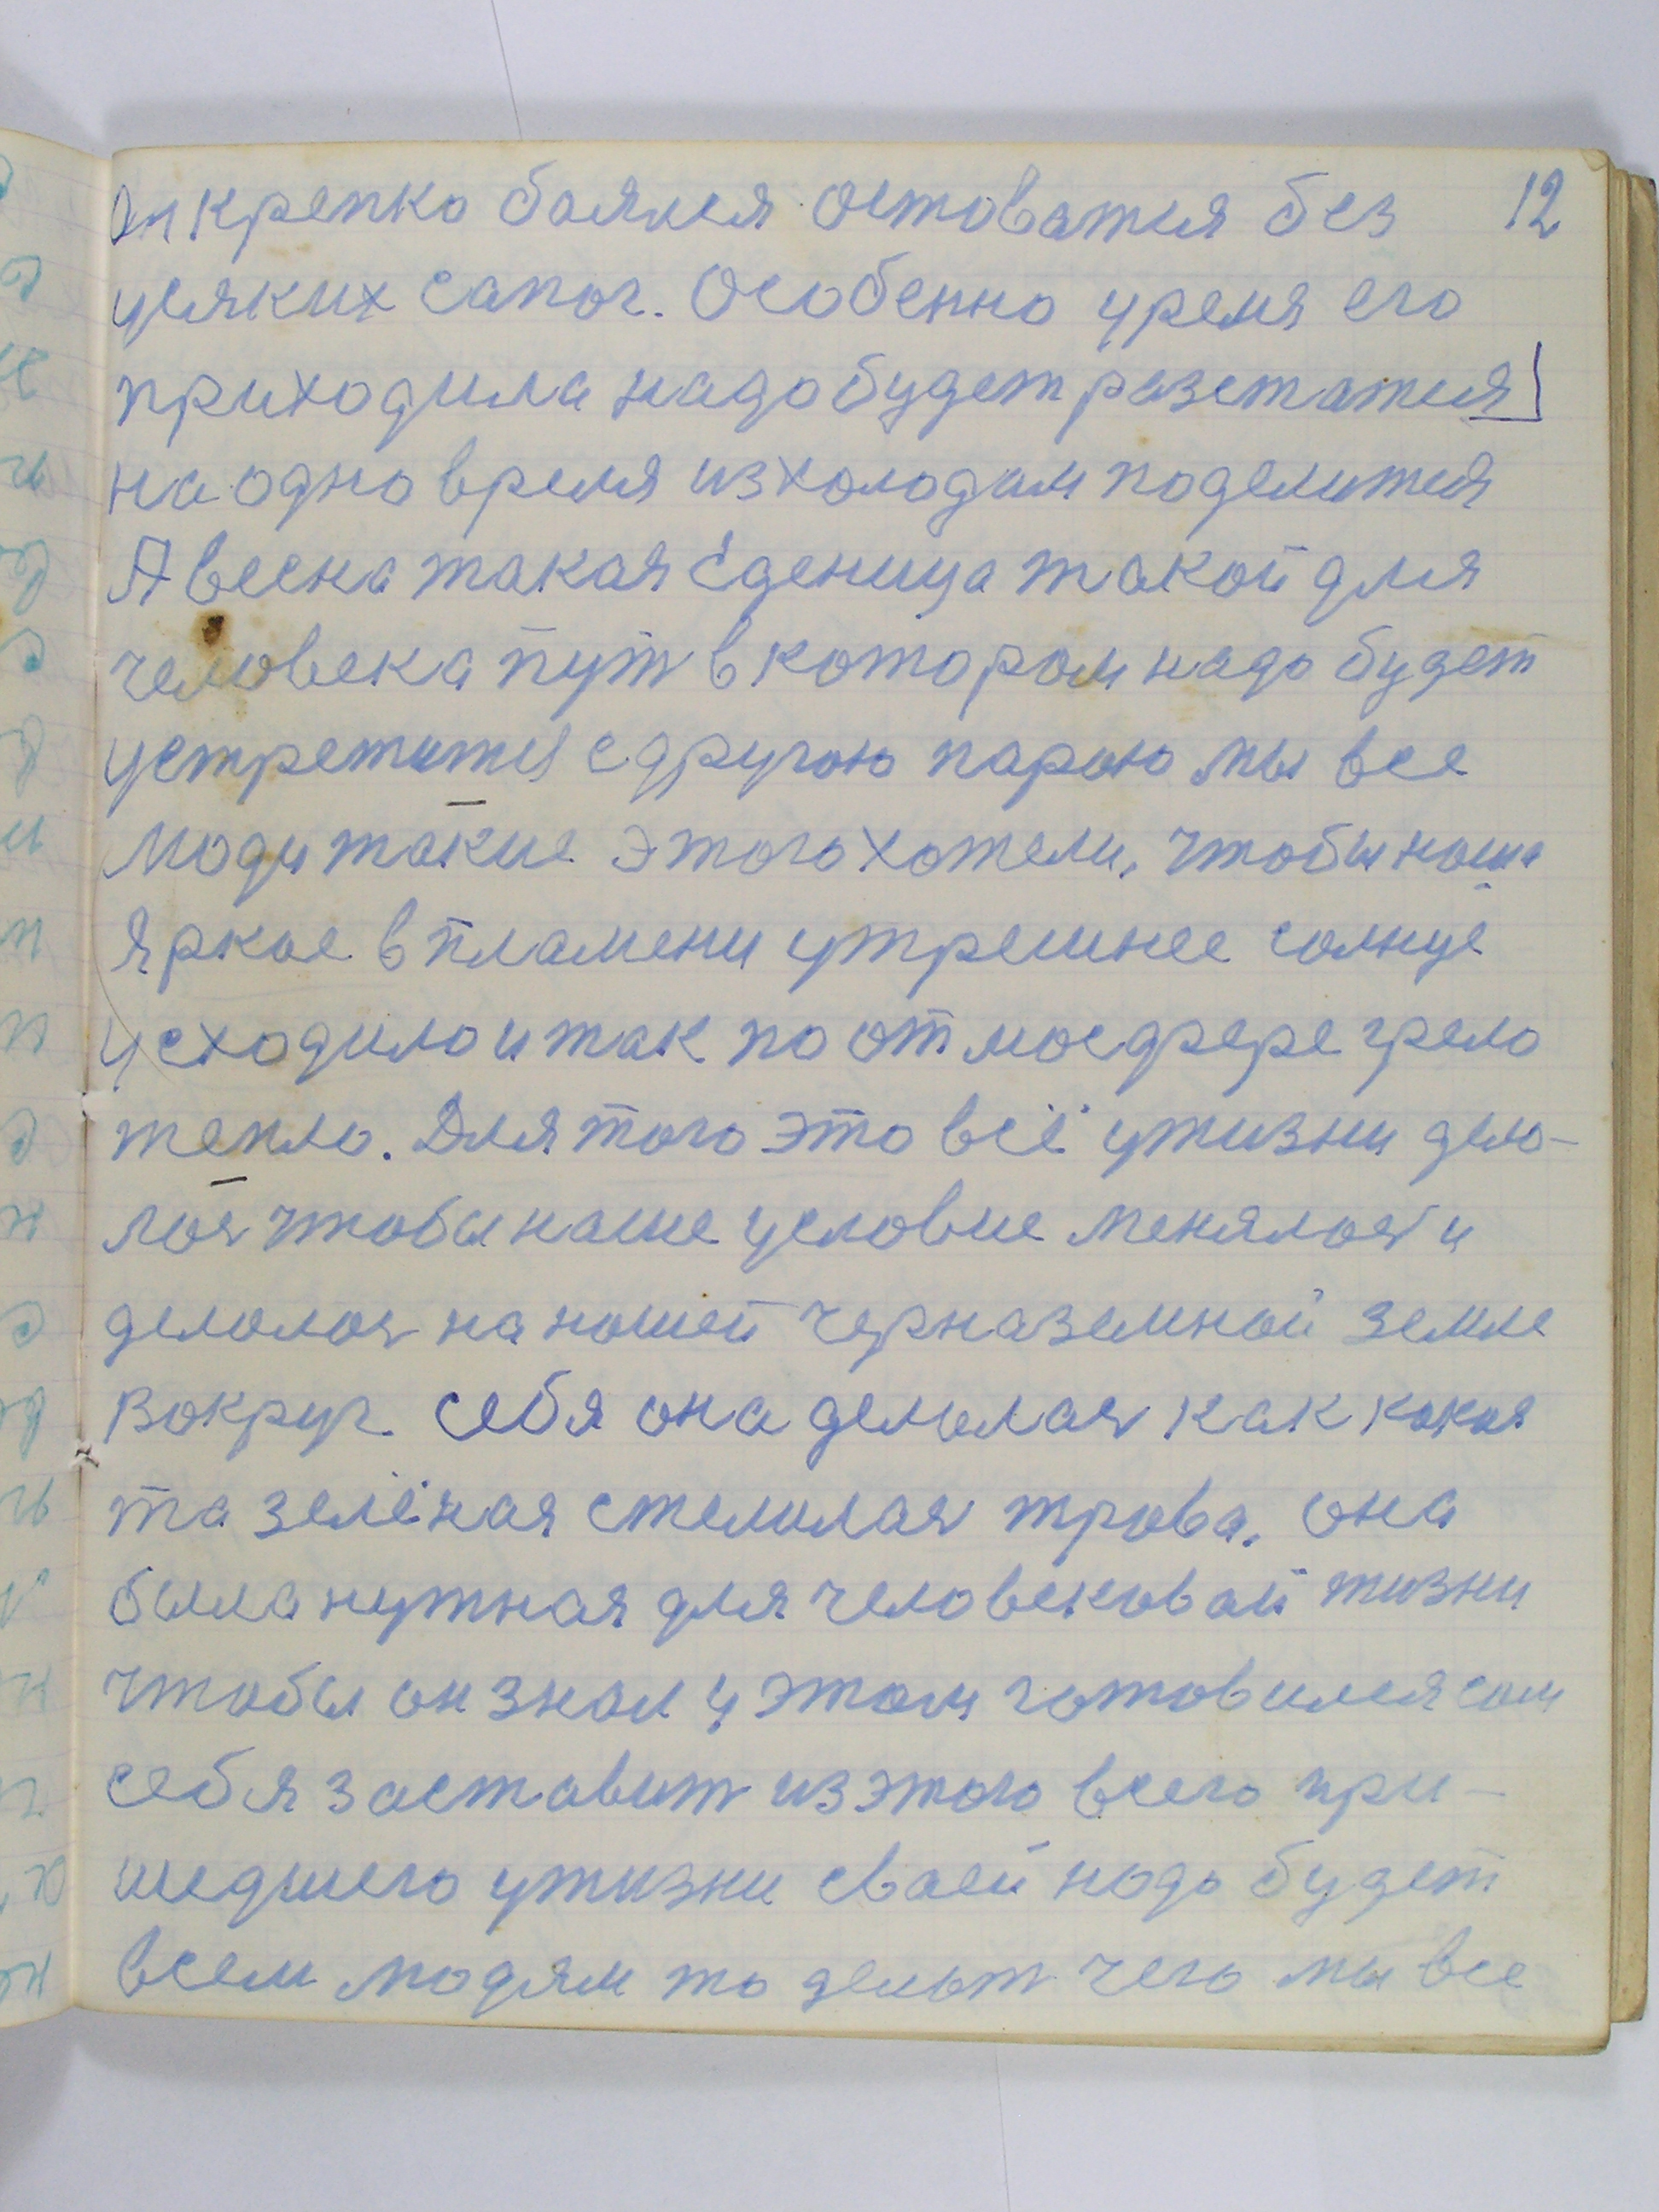 Он крепко боялся остоватся без 12
усяких сапог. Особенно уремя его
приходила надо будет разстатся
на одно время из холодам поделится
А весна такая Еденица такой для
человека пут в котором надо будет
устретится с другою парою мы все
люди такие этого хотели, чтобы наше
яркое в пламени утрешнее солнце
усходило и так по отмосфере грело
тепло. Для того это всё ужизни дело-
лось чтобы наше условие менялось и
делолось на ношей черназемной земле
Вокруг себя она делолась как какая
та зелёная стелилась трова. она
была нужная для человековай жизни
чтобы он знал у этом готовился сам
себя заставит из этого всего при-
шедшего ужизни сваей надо будет
всем людям то делот чего мы все